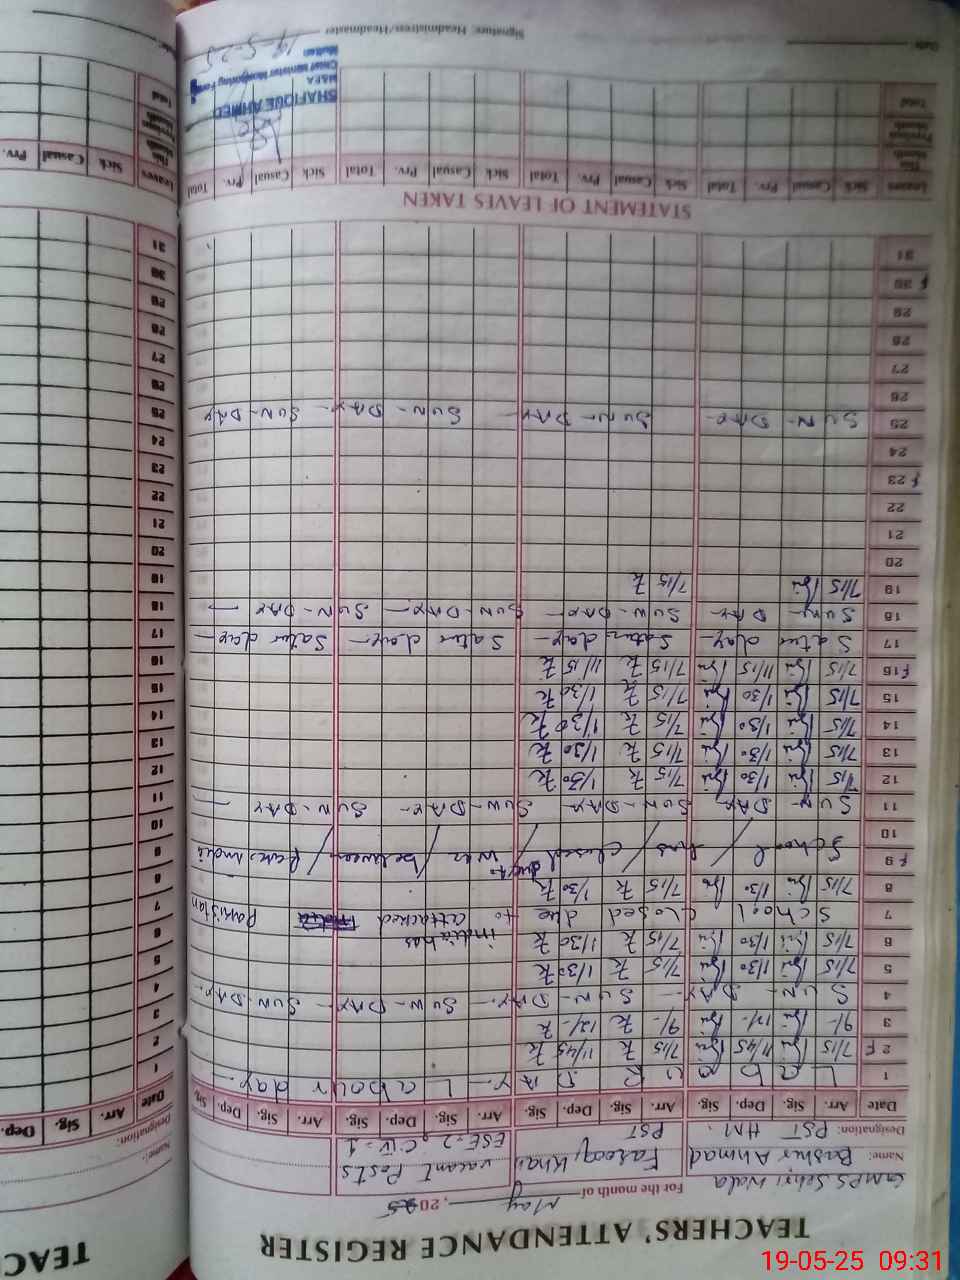 TEACHERS' ATTENDANCE REGISTER
GMPS Sehri Wala For the month of May, 2025
Name: Bashir Ahmad Farooq Khan vacant Posts
Designation: PST HM. PST ESE=2, C IV=1
Date Arr. Sig. Dep. Sig. Arr. Sig. Dep. Sig. Arr. Sig. Dep. Sig. Arr. Sig. Dep. Sig.
1 Labour Day Labour day
2 F 7/15 11/45 7/15 11/45
3 9/- 12/- 9/- 12/-
4 SUN-DAY- SUN-DAY- SUN-DAY- SUN-DAY-
5 7/15 1/30 7/15 1/30
6 7/15 1/30 7/15 1/30
7 School closed due to india has attacked Pakistan
8 7/15 1/30 7/15 1/30
9 F School has closed due to war between Pak-India
10
11 SUN-DAY SUN-DAY SUN-DAY- SUN-DAY
12 7/15 1/30 7/15 1/30
13 7/15 1/30 7/15 1/30
14 7/15 1/30 7/15 1/30
15 7/15 1/30 7/15 1/30
F 16 7/15 11/15 7/15 11/15
17 Satur day- Satur day- Satur day- Satur day-
18 SUN-DAY- SUN-DAY- SUN-DAY- SUN-DAY
19 7/15 7/15
20
21
22
F 23
24
25 SUN-DAY- SUN-DAY- SUN-DAY- SUN-DAY
26
27
28
29
F 30
31
STATEMENT OF LEAVES TAKEN
Leaves Sick Casual Prv. Total Sick Casual Prv. Total Sick Casual Prv. Total Sick Casual Prv. Total
This Month
Previous Month
Total
SHAFIQUE AHMED
M&EA
Chief Minister Monitoring Force
Multan
19-5-25
Date: Signature: Headmistress/Headmaster
TEAC
Name:
Designation:
Date Arr. Sig. Dep.
1
2
3
4
5
6
7
8
9
10
11
12
13
14
15
16
17
18
19
20
21
22
23
24
25
26
27
28
29
30
31
Leaves Sick Casual Prv.
This Month
Previous Month
Total
19-05-25 09:31